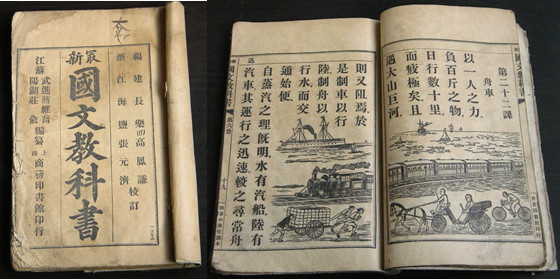 最新
福建長樂高鳳謙
浙江海鹽張元濟
校訂
國文教科書
江蘇
武進蔣維喬
陽湖莊俞
編纂
上海商務印書館印行
第二十二課
舟車
以一人之力
負百斤之物
日行數十里
而疲極矣且
遇大山巨河
則又阻焉於
是制車以行
陸制舟以
行水而交
通始便
自蒸汽之理既明水有汽船陸有
汽車其運行之迅速較之尋常舟
國文教科書
十九